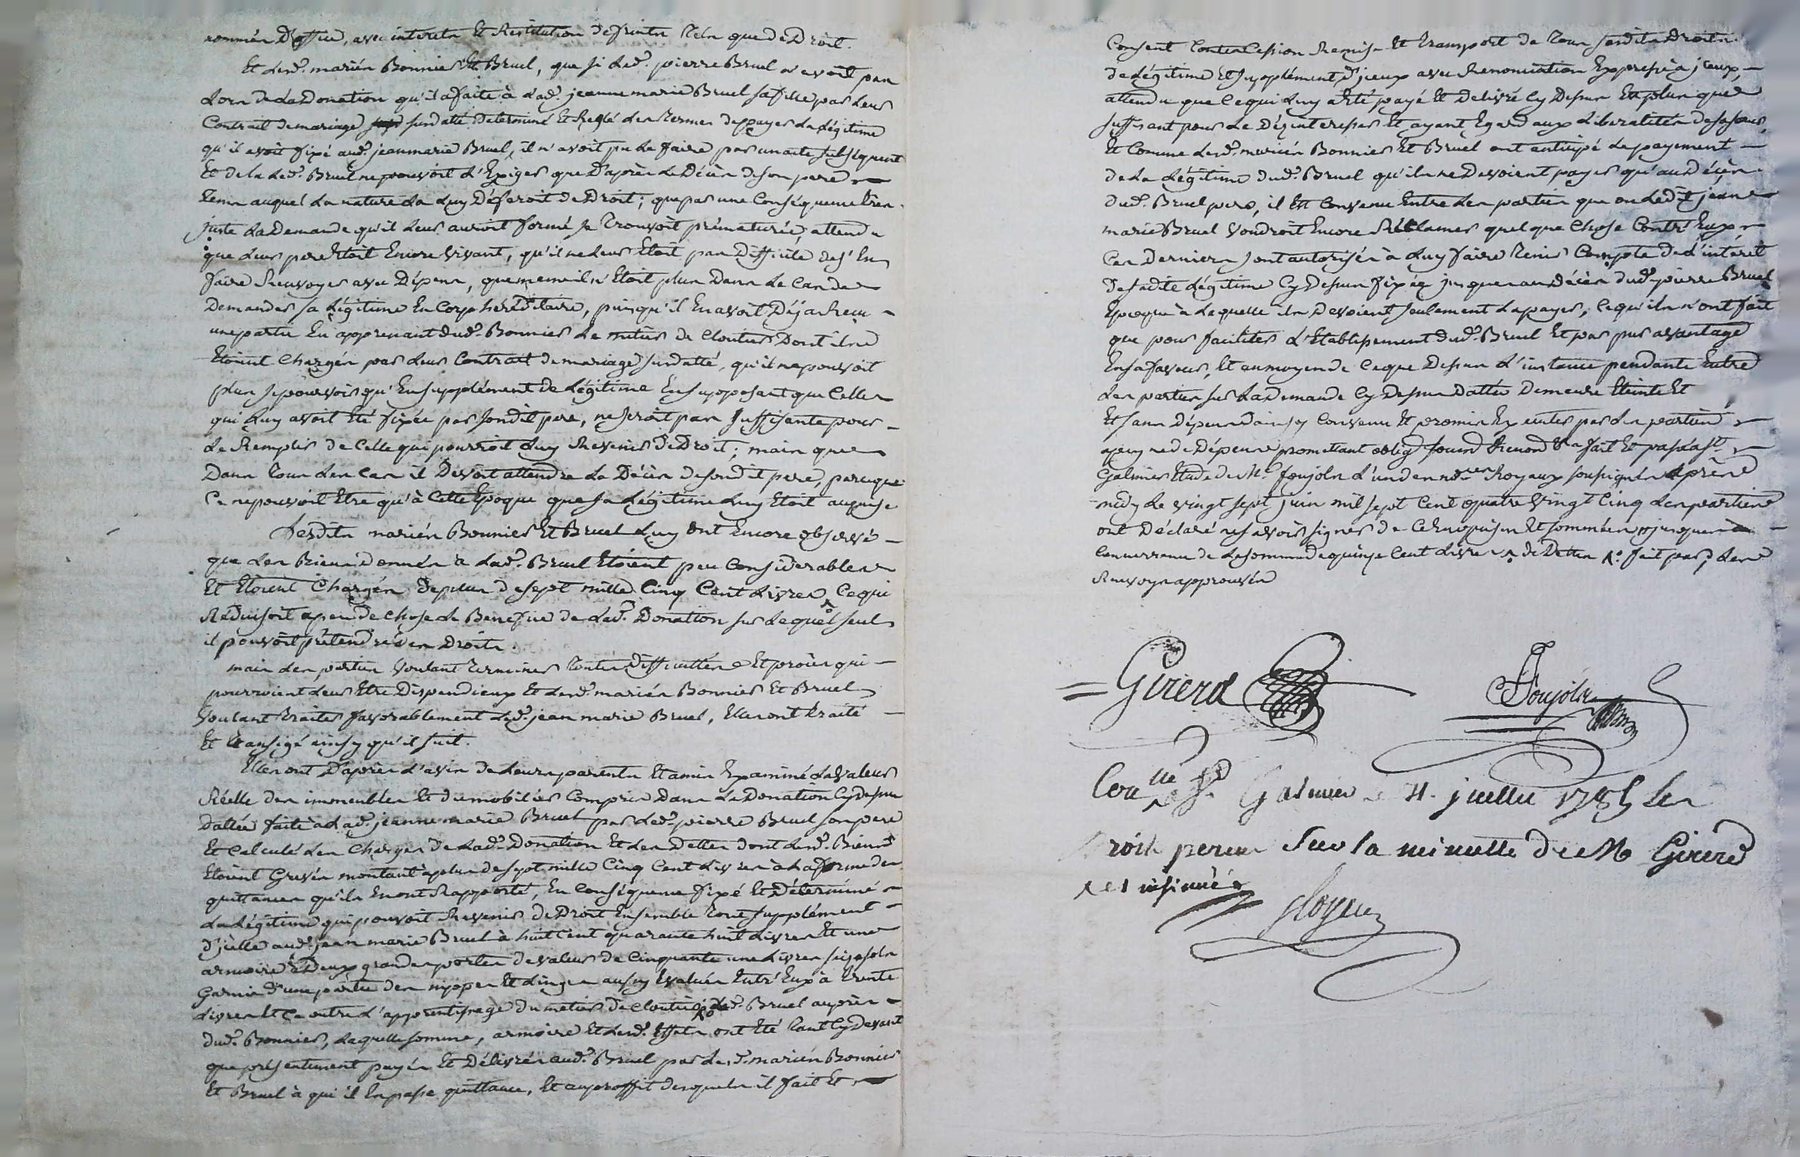 nommés D'office, avec interets Et Restitution de fruits Telle que de Droit.
Et lesd. mariés Bonnier Et Bruel, que si led. pierre Bruel n'avoit pas
Lors de La Donation qu'il a faite à lad. jeanne marie Bruel sa fille par Leur
Contrat de mariage sus datté Determiné Et Reglé Les Termes de payer La Légitime
qu'il avoit fixé aud. jean marie Bruel, il n'avoit pu Le faire par un acte subséquent
Et de la Led. Bruel ne pouvoit L'Exiger que D'après Le Décès de son pere
Tems auquel La nature La Luy Déferoit de Droit; que par une Conséquence bien
juste La Demande qu'il Leur auroit formé se Trouvoit prématurée, attendu
que Leur pere Etoit Encore vivant, qu'il ne Leur Etoit pas Difficile de s'En
faire Renvoyer avec Dépens, que meme il n'Etoit plus Dans Le Cas de
Demander sa Légitime En Corps héréditaire, puisqu'il En avoit Déja Recu
une partie En apprenant dud. Bonnier Le metier de Cloutier Dont ils
Etoient Chargés par Leur Contrat de mariage sus datté, qu'il ne pouvoit
plus se pourvoir qu'En supplément de Légitime En supposant que Celle
qui Luy avoit Eté fixée par son dit pere, ne seroit pas suffisante pour
Le Remplir de Celle qui pourroit Luy Revenir de Droit; mais que
Dans Tous Les Cas il Devoit attendre Le Décès de son dit pere, parceque
Ce ne pouvoit Etre qu'à Cette Epoque que sa Légitime Luy Etoit acquise
Lesdits mariés Bonnier Et Bruel Luy ont Encore observé
que Les Biens donnés à Lad. Bruel Etoient peu Considerables
Et Etoient Chargés de plus de sept mille Cinq Cent Livres, Ce qui
Reduisoit a peu de chose Le Benefice de Lad. Donation sur Lequel seul
il pouvoit prétendre des Droits.
mais Les parties voulant Terminer Toutes Difficultés Et procès qui
pourroient Leur Etre Dispendieux Et Lesd. mariés Bonnier Et Bruel
voulant Traiter favorablement Led. jean marie Bruel, Elles ont Traité
Et Transigé ainsy qu'il suit.
Elles ont D'après L'avis de Leurs parents Et amis Examiné La valeur
Réelle des immeubles Et du mobilier Compris Dans La Donation Cy Dessus
Dattée faite à Lad. jeanne marie Bruel par Led. pierre Bruel son pere
Et Calculé Les Charges de Lad. Donation Et Les Dettes dont Lesd. Biens
Etoient Grevés montant à plus de sept mille Cinq Cent Livres à La forme des
quittances qu'ils En ont Rapporté, En Conséquence fixé Et Déterminé
La Légitime qui pouvoit Revenir de Droit Ensemble Tout supplément
d'icelle aud. jean marie Bruel à huit Cent quarante huit Livres Et une
armoire à Deux grandes portes de valeur de Cinquante une Livres six sols
Garnie d'une partie des nippes Et Linges aussy Evalués Entr'Eux à Trente
Livres Et Ce outre L'apprentissage du metier de Cloutier Led. Bruel auprès
dud. Bonnier, Laquelle somme, armoire Et Lesd. Effets ont Eté Tant Cy devant
que présentement payés Et Délivrés aud. Bruel par Lesd. mariés Bonnier
Et Bruel à qui il En passe quittance, Et au proffit desquels il fait Et
Consent toute Cession Remise Et transport de Tous sesdits Droits
de Légitime Et supplément d'iceux avec Renonciation Expresse à iceux,
attendu que Ce qui Luy a Eté payé Et Delivré Cy Dessus Est plus que
suffisant pour Le Désinteresser Et ayant Egard aux Liberalités de sa sœur,
Et Comme Lesd. mariés Bonnier Et Bruel ont anticipé Le payement
de La Légitime dud. Bruel qu'ils ne Devoient payer qu'au Décès
dud. Bruel pere, il Est Convenu Entre Les parties que ou Ledit jean
marie Bruel voudroit Encore Réclamer quelque Chose Contr'Eux
Ces Derniers sont autorisés à Luy faire Tenir Compte de L'interêt
de sadite Légitime Cy Dessus fixée jusques au Décès dud. pierre Bruel
Epoque à Laquelle ils Devoient seulement La payer, Ce qu'ils n'ont fait
que pour faciliter L'Etablissement dud. Bruel Et par pur avantage
En sa faveur, Et au moyen de Ce que Dessus L'instance pendante Entre
Les parties sur La Demande Cy Dessus Dattée Demeure Eteinte Et
Et sans Dépens ainsy Convenu Et promis Executer par Les parties
a peyne de Dépens promettant oblig. soum. Renon. &a fait Et passé a St.
Galmier Etude de Me. Foujols L'un des nores. Royaux soussignés après
midy Le vingt sept juin mil sept Cent quatre vingt Cinq Les parties
ont Déclaré ne savoir signer de Ce Enquises Et sommées jusques a
Concurrence de La somme de quinze Cent Livres de Dettes fait par Les
Renvoys approuvés
Girerd
Foujols
Conlle. St. Galmier Le 11. juillet 1785 Les
Droits percus Sur la minutte de Me Girerd
et insinué